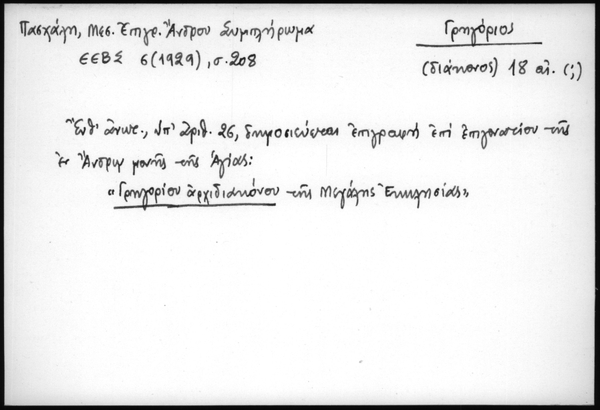 Πασχάλη, Μεσ. Ἐπιγρ. Ἄνδρου Συμπλήρωμα
ΕΕΒΣ 6 (1929), σ. 208
Γρηγόριος
(διάκονος) 18 αἰ. (;)
Ἔνθ' ἄνωτ., ὑπ' ἀριθ. 26, δημοσιεύεται ἐπιγραφή ἐπί ἐπιγονατίου τῆς
ἐν Ἄνδρῳ μονῆς τῆς Ἁγίας:
«Γρηγορίου ἀρχιδιακόνου τῆς Μεγάλης Ἐκκλησίας»